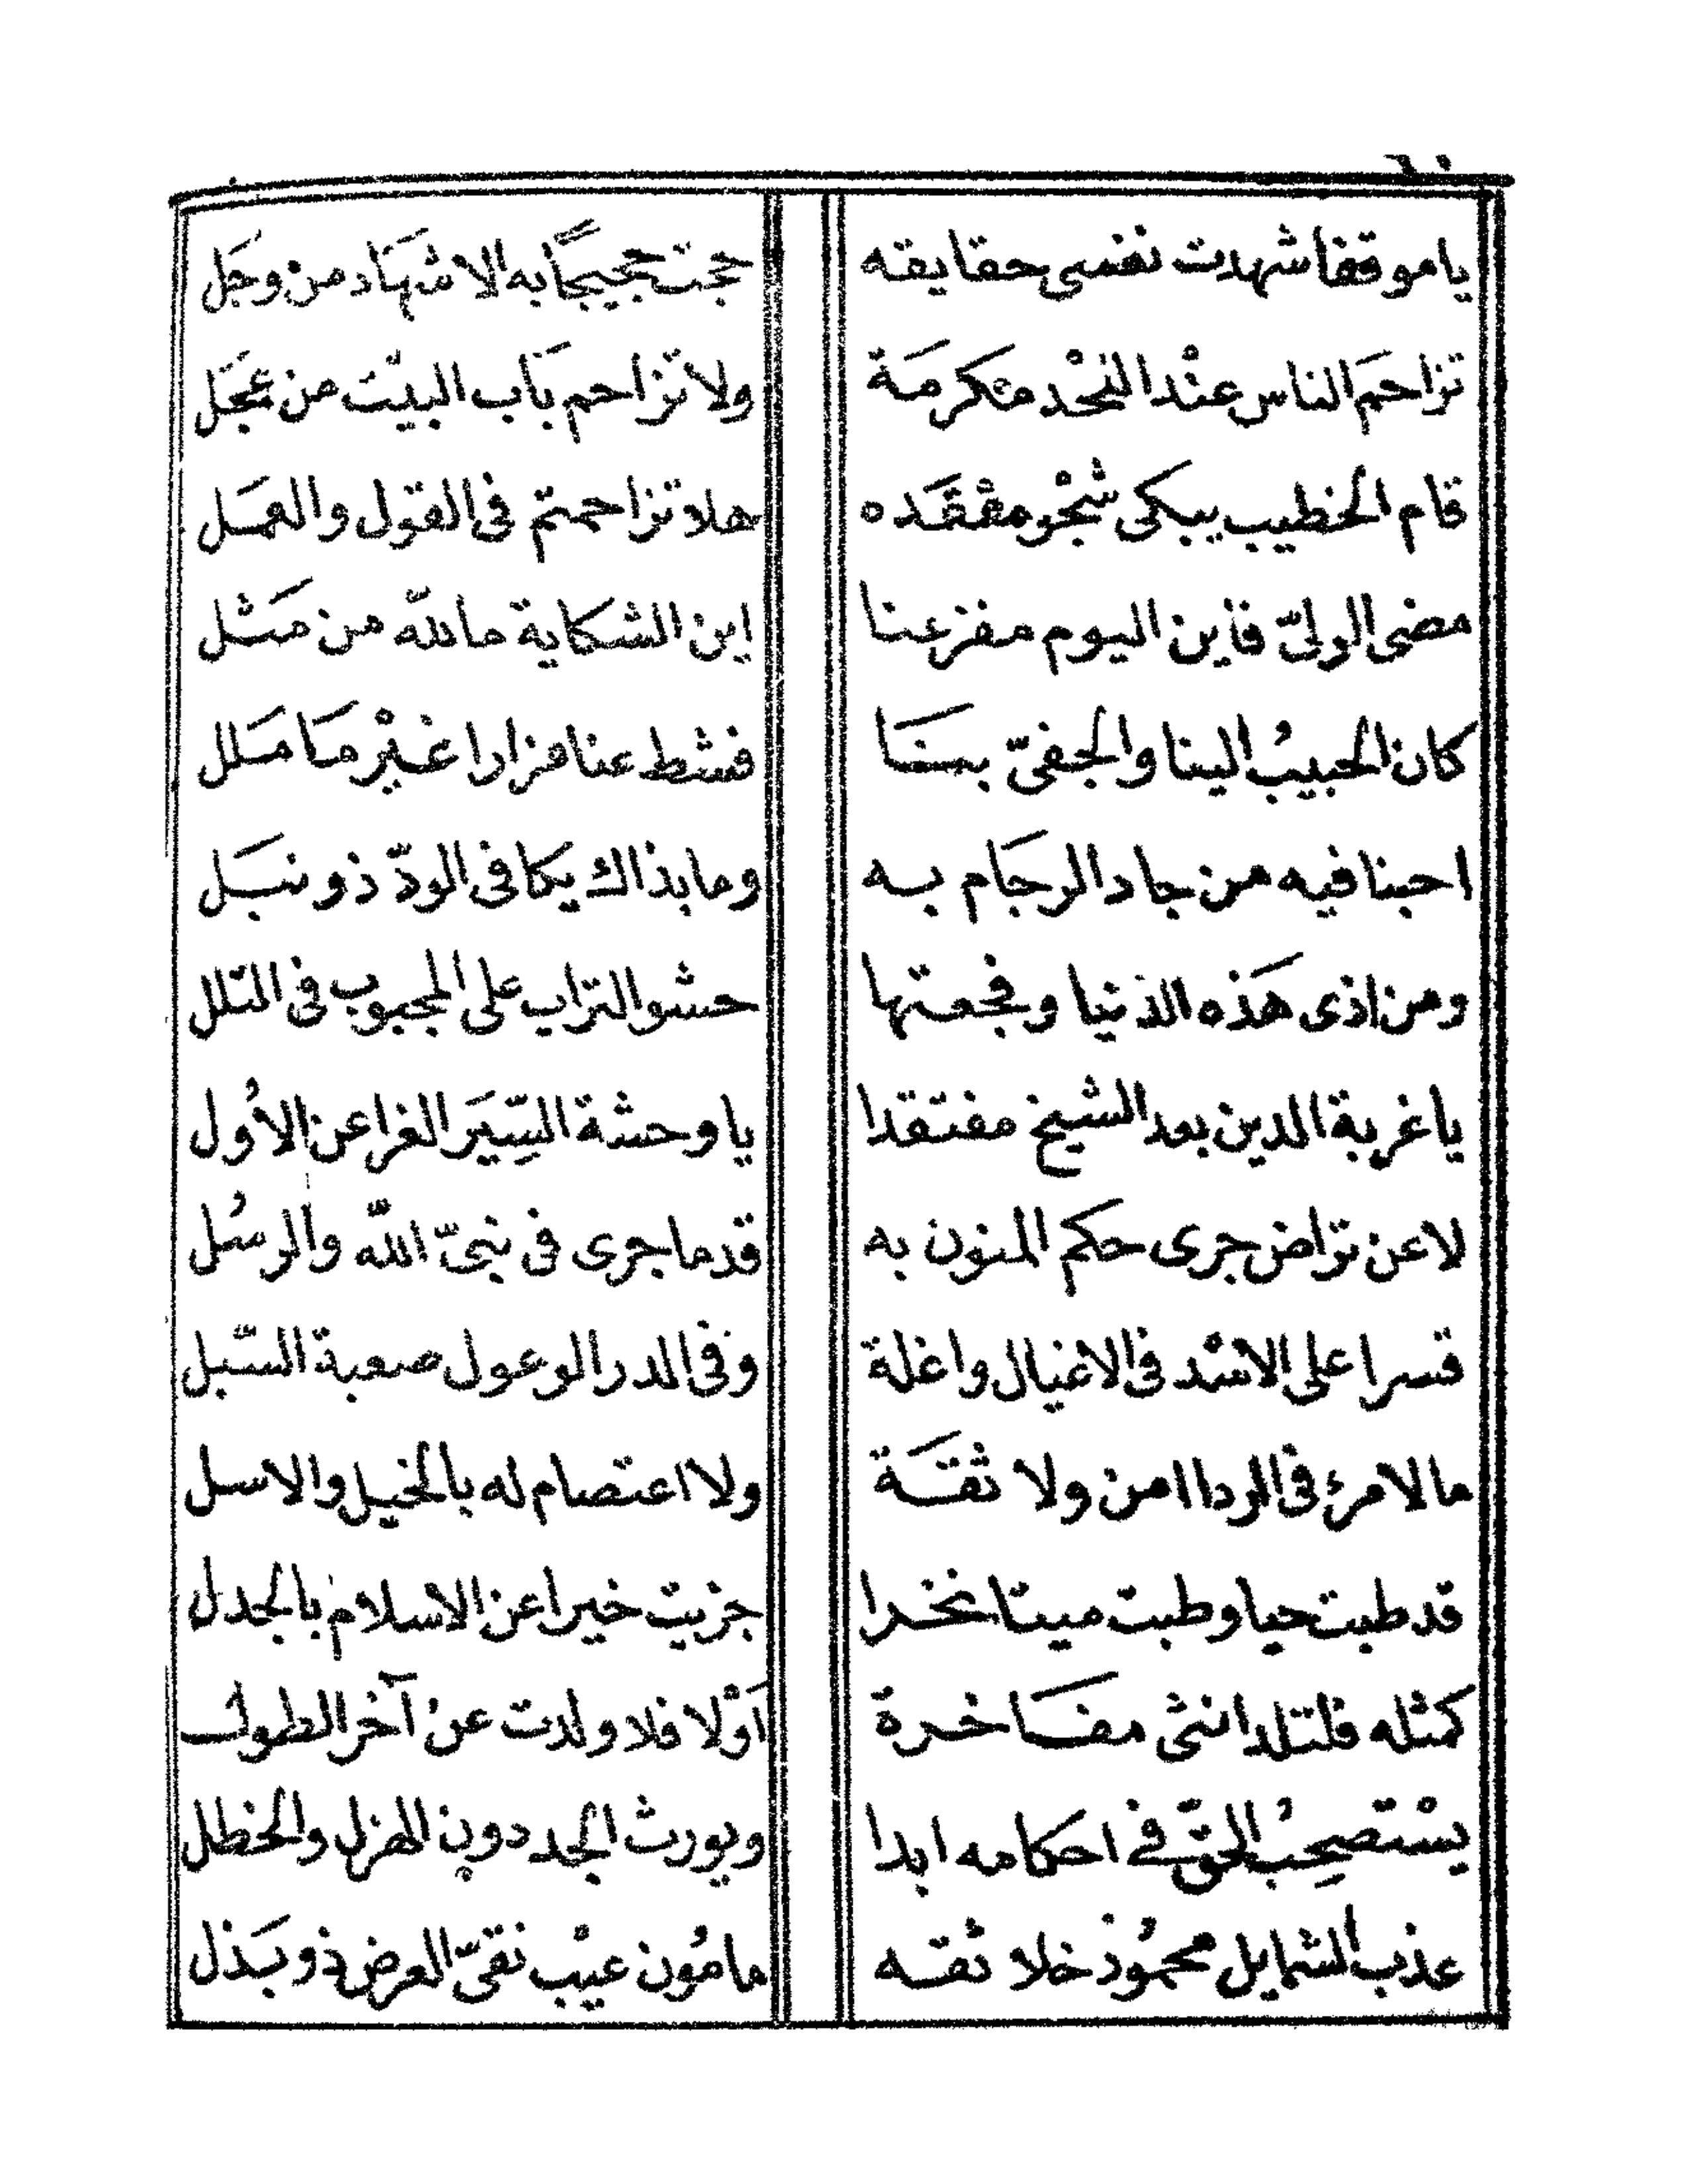 ياموقفا شهدت نفسى حقايقه حجت حجيجًا به الاشهَاد من وجَل
تزاحمَ الناس عنْد النحْد مكرمَة ولا تزاحم بَاب البيْت من عجَل
قام الخطيب يبكى شجْو مفْقَده هلا تزاحمتم فى القول والعمَل
مضى الولىّ فاين اليوم مفزعنا اين الشكاية مالله من مَثل
كان الحبيبُ الينا والحفىّ بنَا فشط عنا مزارا غيْر مَا مَلل
احبنا فيه من جاد الرجَام به وما بذاك يكافى الودّ ذو نبَل
ومن اذى هَذه الدنيا وفجعتها حشو التراب على المحبوب فى التلل
يا غربة الدين بعد الشيخ مفتقدا يا وحشة السِّيَر الغرا عن الأول
لا عن تراض جرى حكم المنون به قدما جرى فى نبىّ اللّه والرسُل
قسرا على الاسْد فى الاغيال واغلة وفى الدر الوعول صعبة السّبل
ما لامرئ فى الردا امن ولا ثقَة ولا اعتصام له بالخيل والاسل
قد طبت حيا وطبت ميتا نخرا جزيت خيرا عن الاسلام بالجدل
كمثله فلتلد انثى مفَاخرة اَوْلا فلا ولدت عنْ آخر الطول
يسْتصحِبُ الحقّ فے احكامه ابدا ويورث الجد دون الهزل والخطل
عذب الشمايل محمُود خلائقه مامُون عيْب نقىّ العرض ذو بَذل